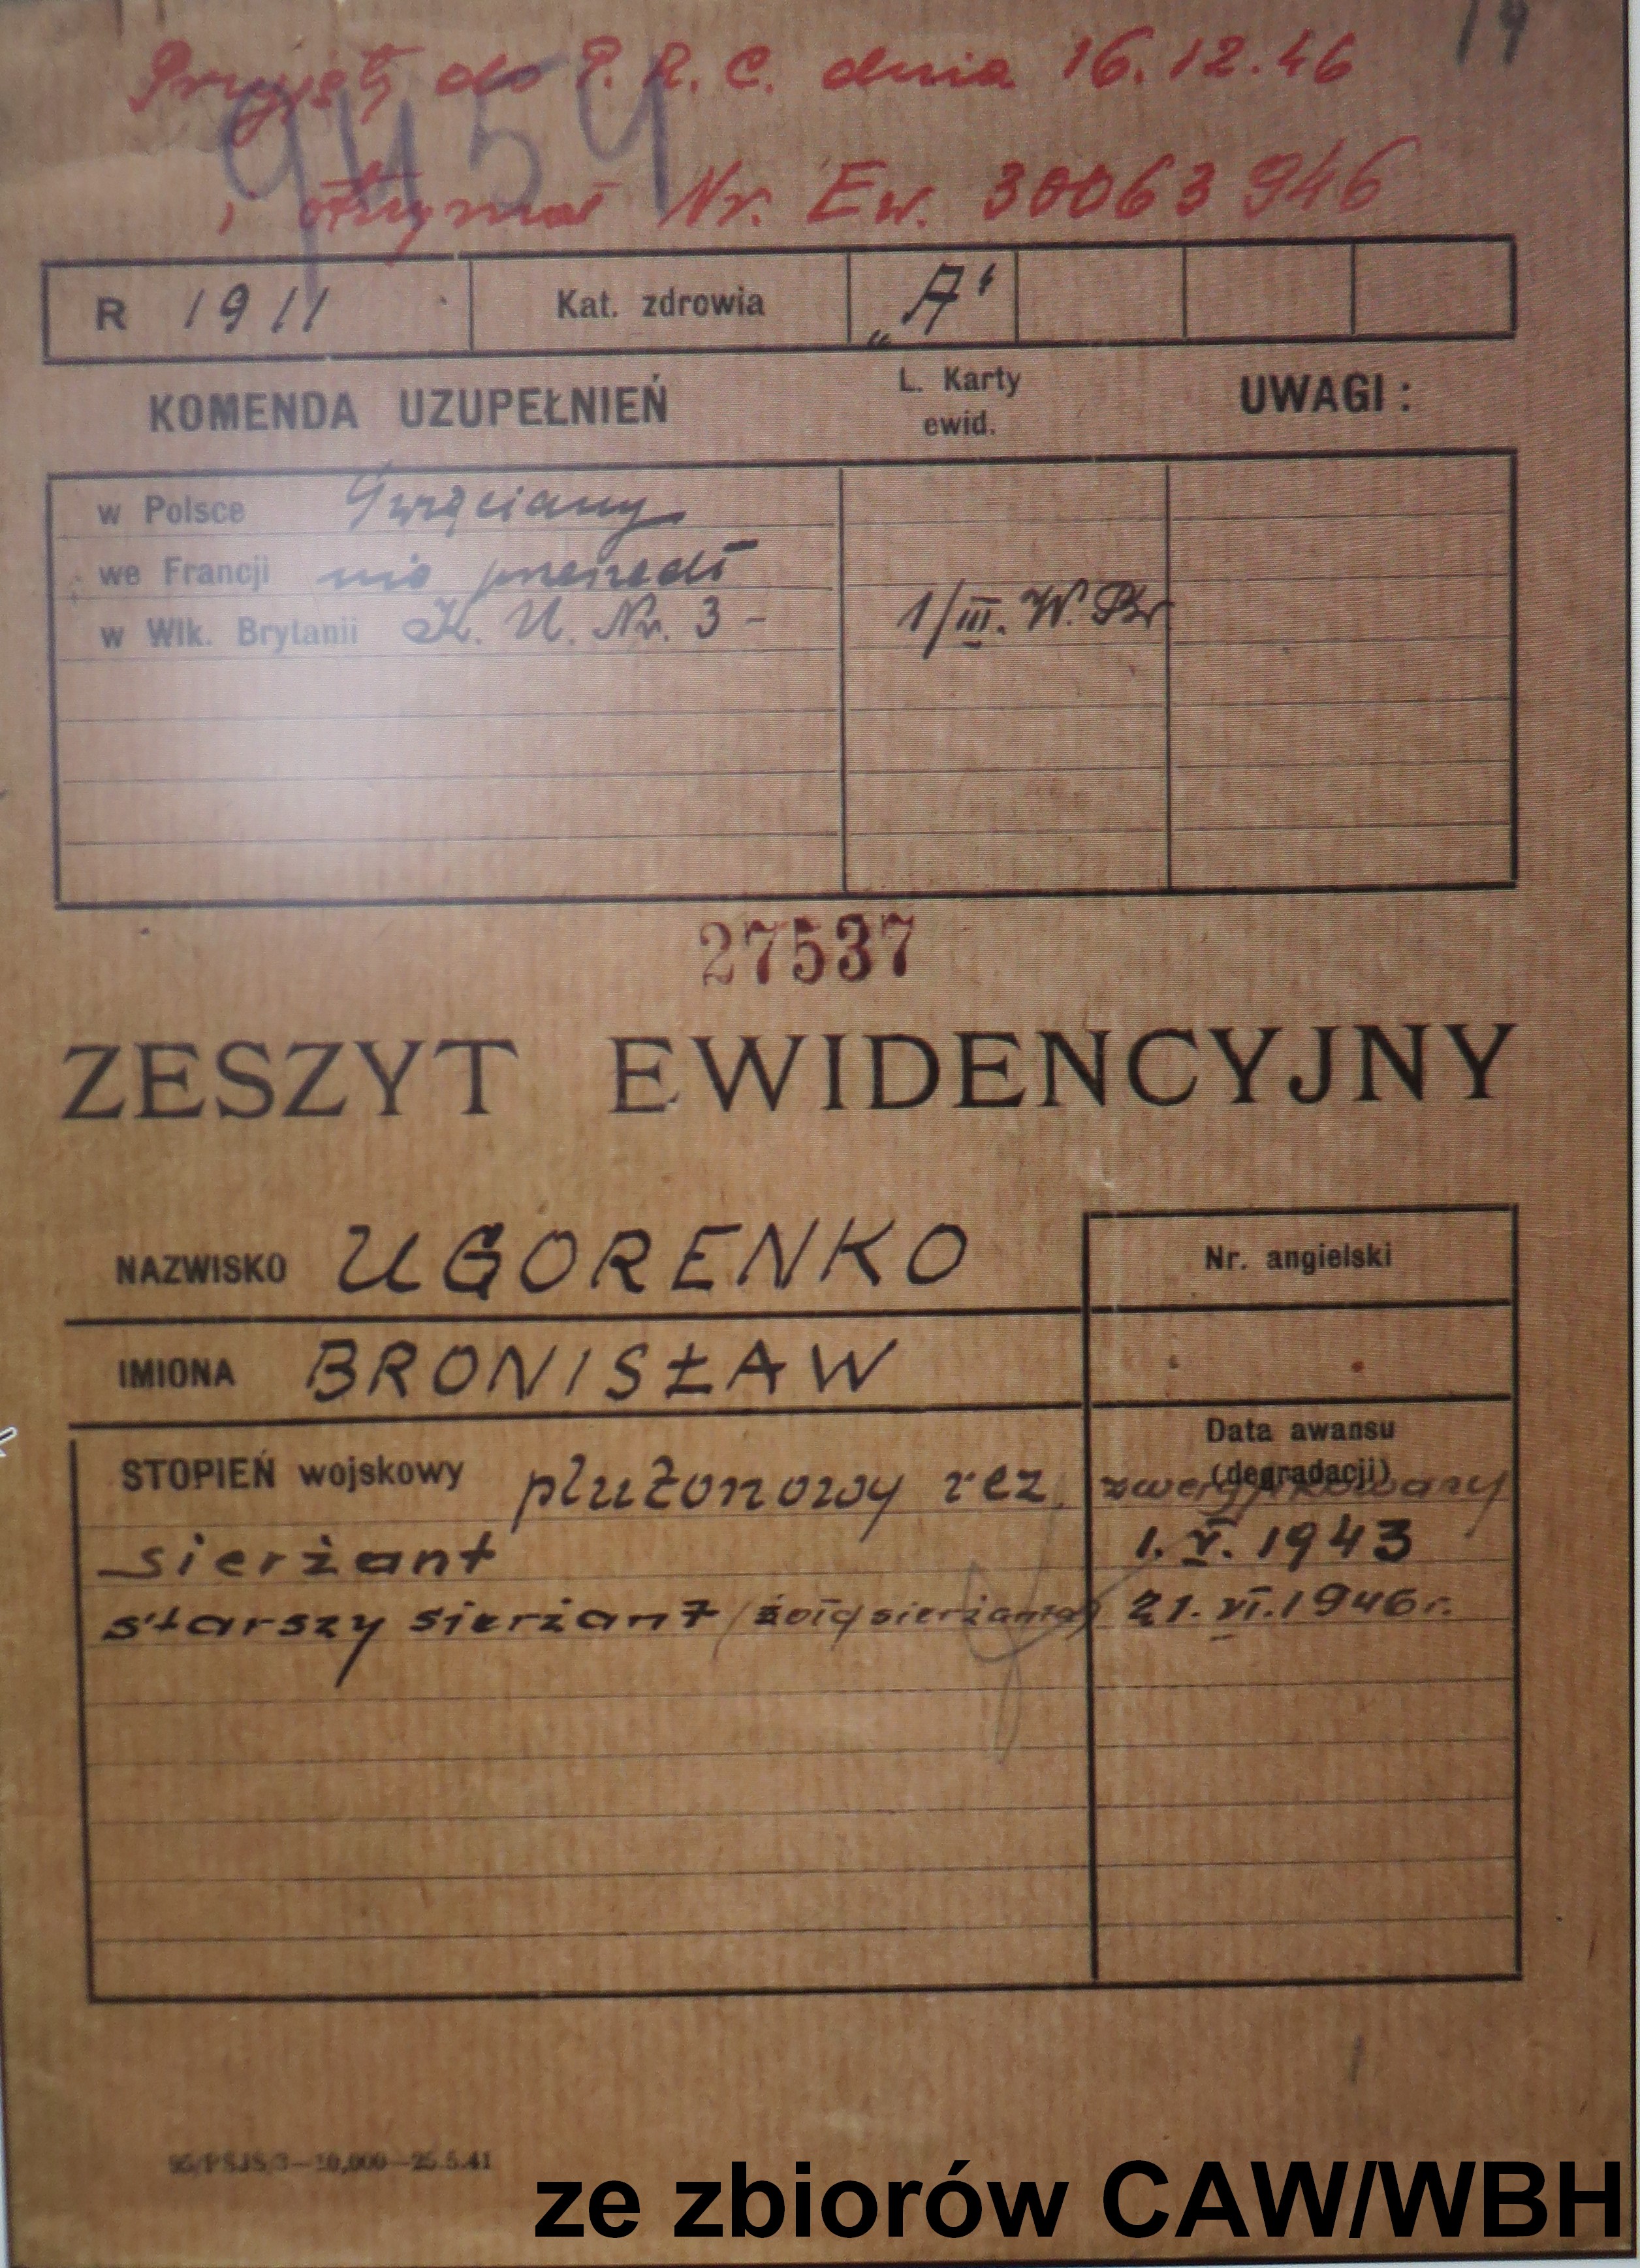 19
Przyjęty do P. R. C. dnia 16.12.46
9454
i otrzymał Nr. Ew. 30063946
R 1911 Kat. zdrowia „A"
KOMENDA UZUPEŁNIEŃ L. Karty ewid. UWAGI:
w Polsce Święciany
we Francji nie
w Wlk. Brytanii K. U. Nr. 3 - 1/III. W. Br
27537
ZESZYT EWIDENCYJNY
NAZWISKO UGORENKO Nr. angielski
IMIONA BRONISŁAW
Data awansu
STOPIEŃ wojskowy plutonowy rez. (degradacji) zweryfikowany
sierżant 1. V. 1943
starszy sierżant (żołd sierżanta) 21. VI. 1946 r.
95/PSJS/3—10,000—25.5.41
ze zbiorów CAW/WBH